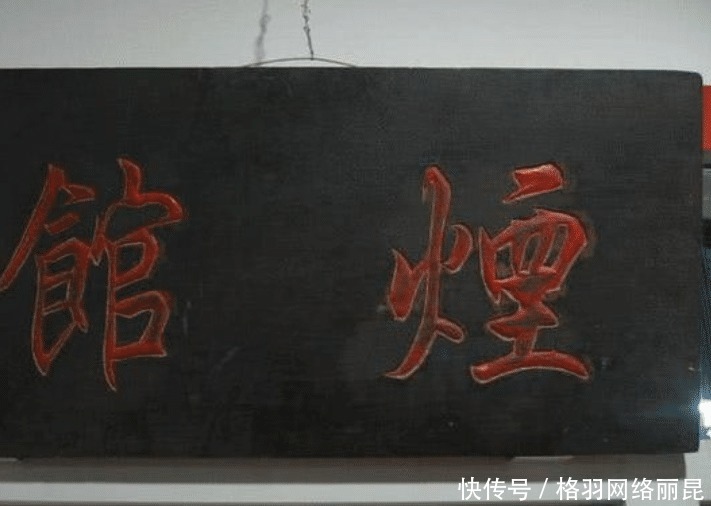 煙館
快传号/格羽网络丽昆